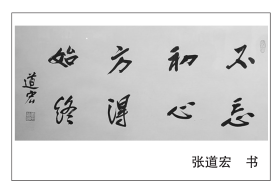 不忘
初心
方得
始终
道宏
张道宏 书